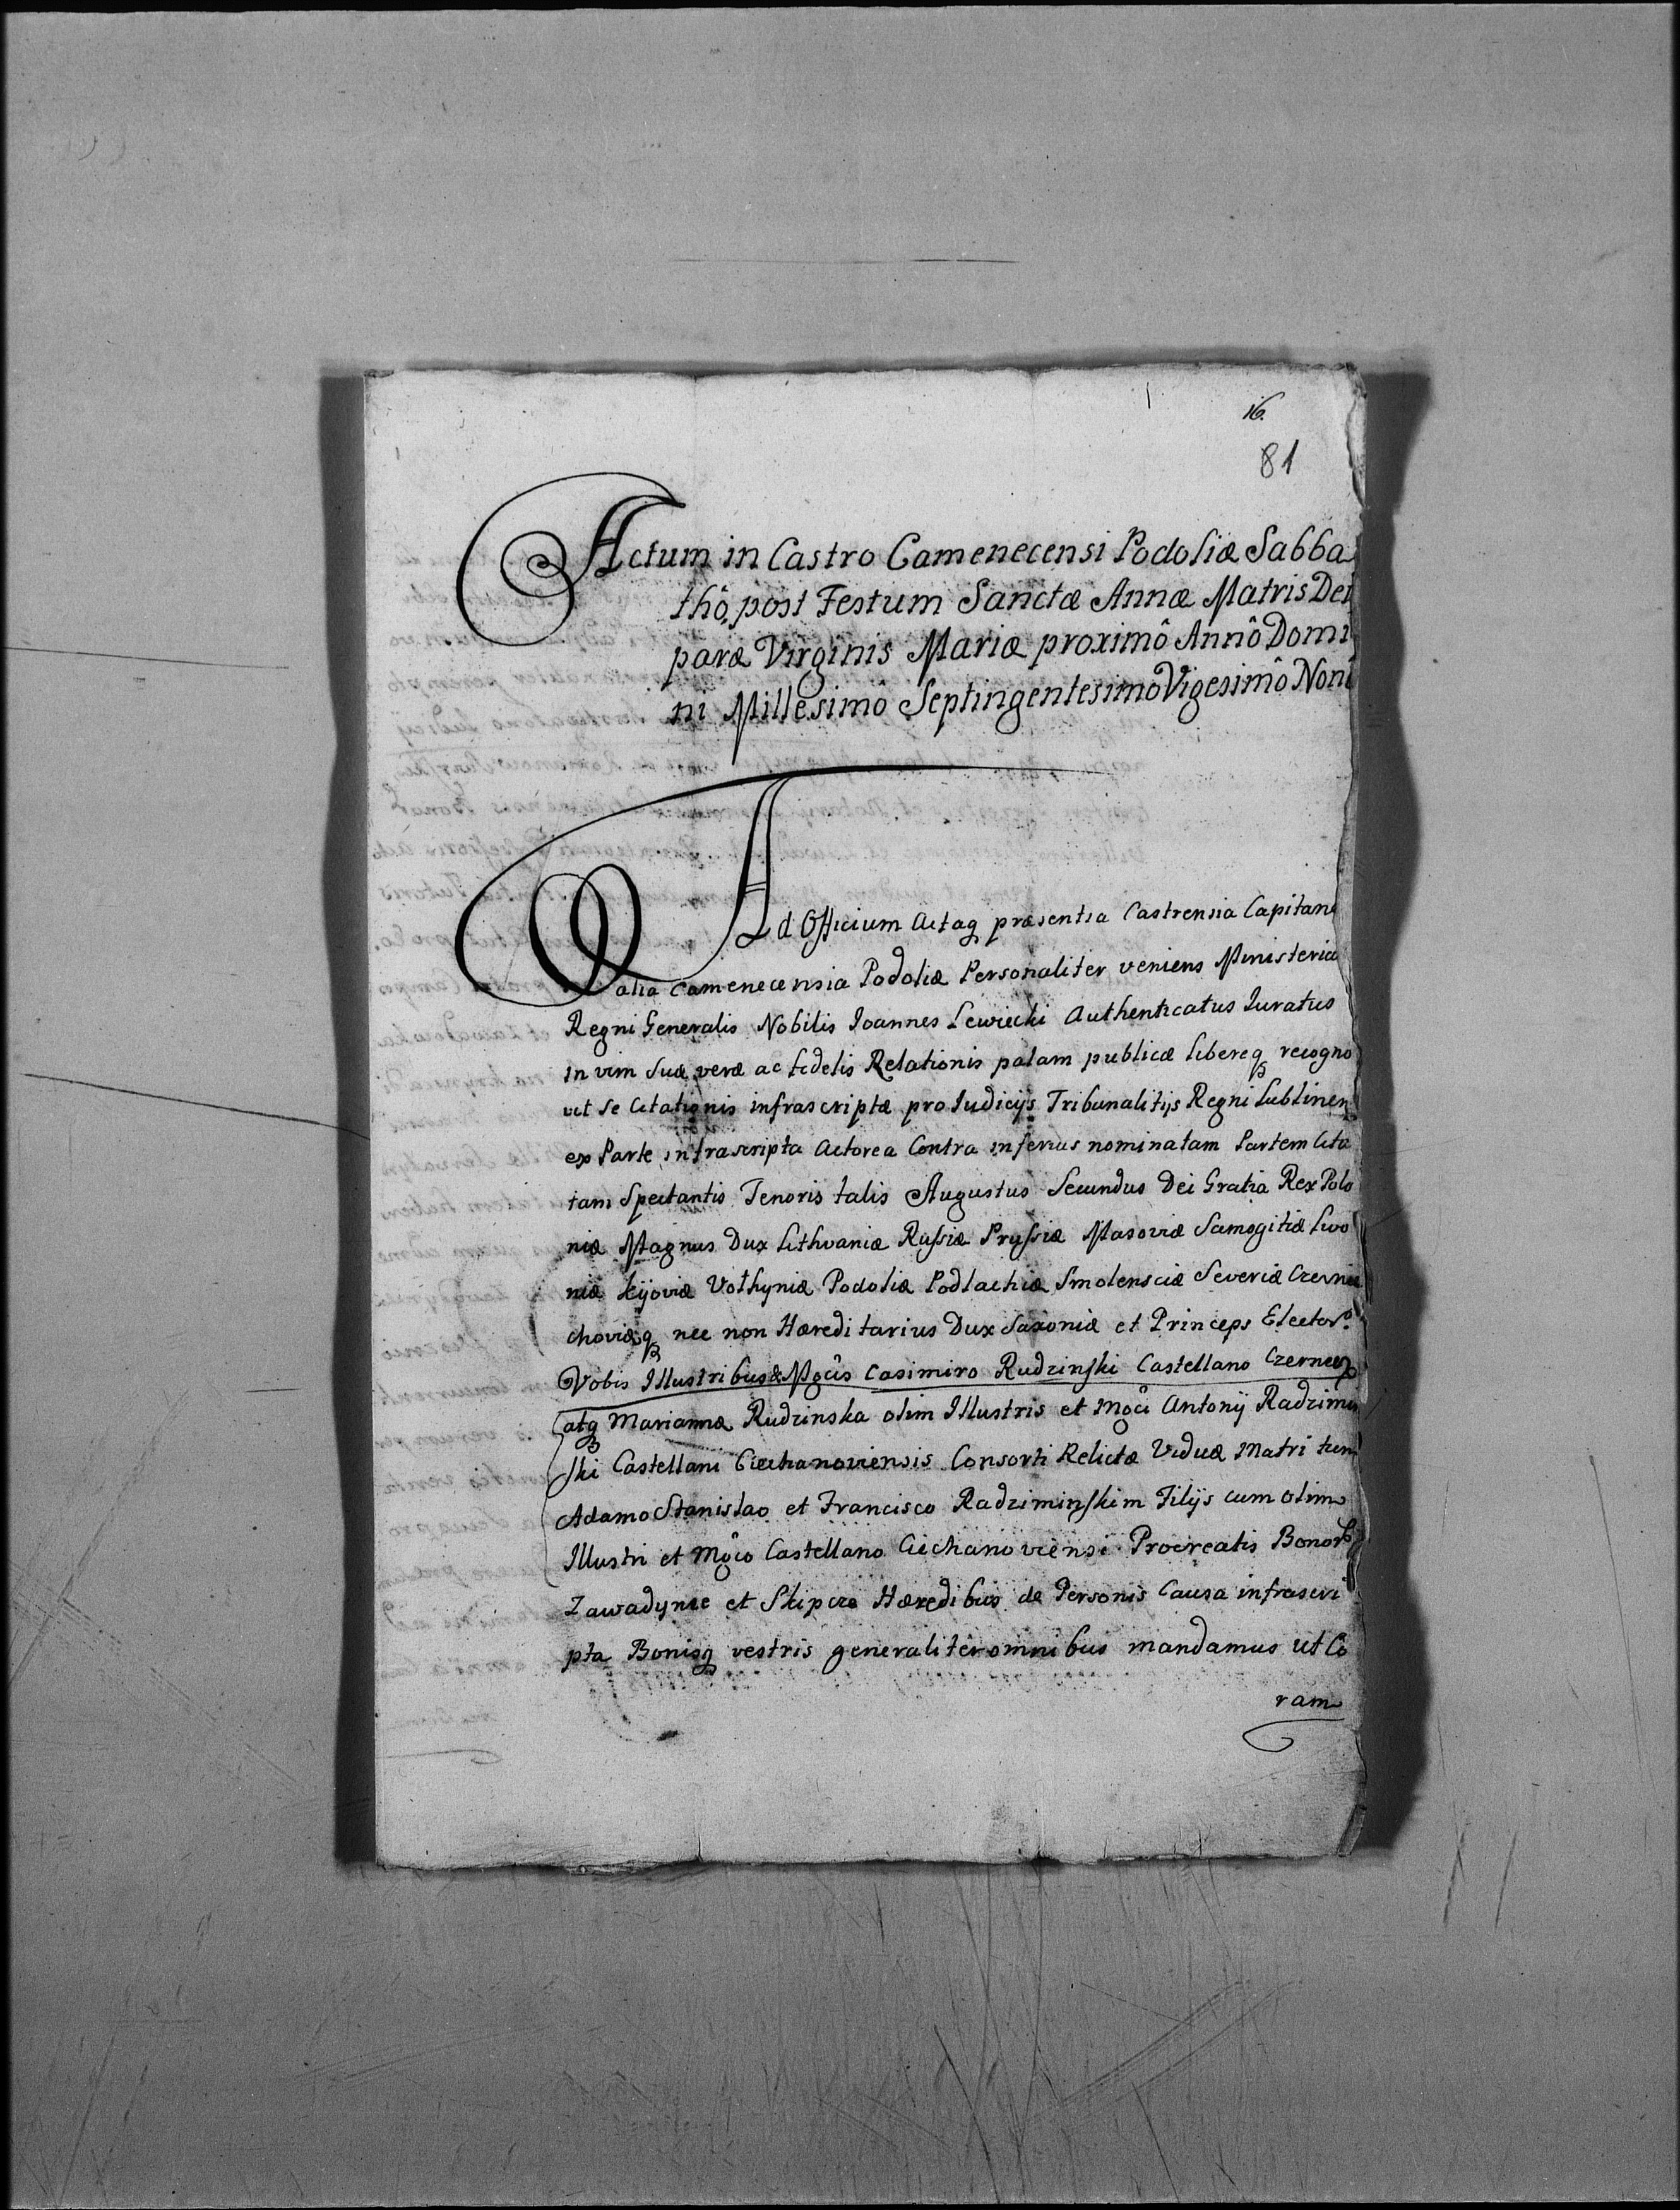 16.
81
Actum in Castro Camenecensi Podoliæ Sabba
thô post Festum Sanctæ Annæ Matris Dei
paræ Virginis Mariæ proximô Annô Domi
ni Millesimô Septingentesimo Vigesimô Nonô
Ad Officium Actaq præsentia Castrensia Capitane
alia Camenecensia Podoliæ Personaliter veniens Ministeria
Regni Generalis Nobilis Joannes Lewicki Authenticatus Juratus
in vim suæ veræ ac fidelis Relationis palam publicæ libereq recogno
vit se Citationis infrascriptæ pro Judicijs Tribunalitijs Regni Lublinen
ex Parte infrascripta Actorea Contra inferius nominatam Partem Cita
tam Spectantis Tenoris talis Augustus Secundus Dei Gratia Rex Polo
niæ Magnus Dux Lithvaniæ Russiæ Prussiæ Masoviæ Samogitiæ Livo
niæ Kijoviæ Volhyniæ Podoliæ Podlachiæ Smolensciæ Severiæ Czernie
choviæq nec non Hæreditarius Dux Saxoniæ et Princeps Elector.
Vobis Illustribus & Mgcis Casimiro Rudzinski Castellano Czernen
atq Mariannæ Rudzinska olim Illustris et Mgci Antonij Radzimin
ski Castellani Ciechanoviensis Consorti Relictæ Viduæ Matri tum
Adamo Stanislao et Francisco Radziminskim Filijs cum olim
Illustri et Mgco Castellano Ciechanoviensi Procreatis Bonor
Zawadynie et Skipcze Hæredibus de Personis Causa infrascri
pta Bonisq vestris generaliter omnibus mandamus ut Co
ram